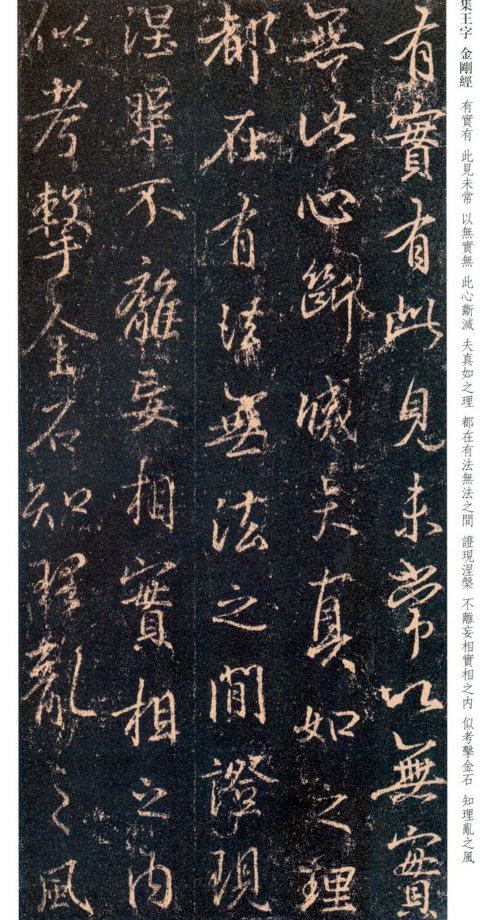 集王字 金剛經 有實有 此見未常 以無實無 此心斷滅 夫真如之理 都在有法無法之間 證現涅槃 不離妄相實相之內 似考擊金石 知理亂之風
有實有此見未常以無實
無此心斷滅夫真如之理
都在有法無法之間證現
涅槃不離妄相實相之內
似考擊金石知理亂之風